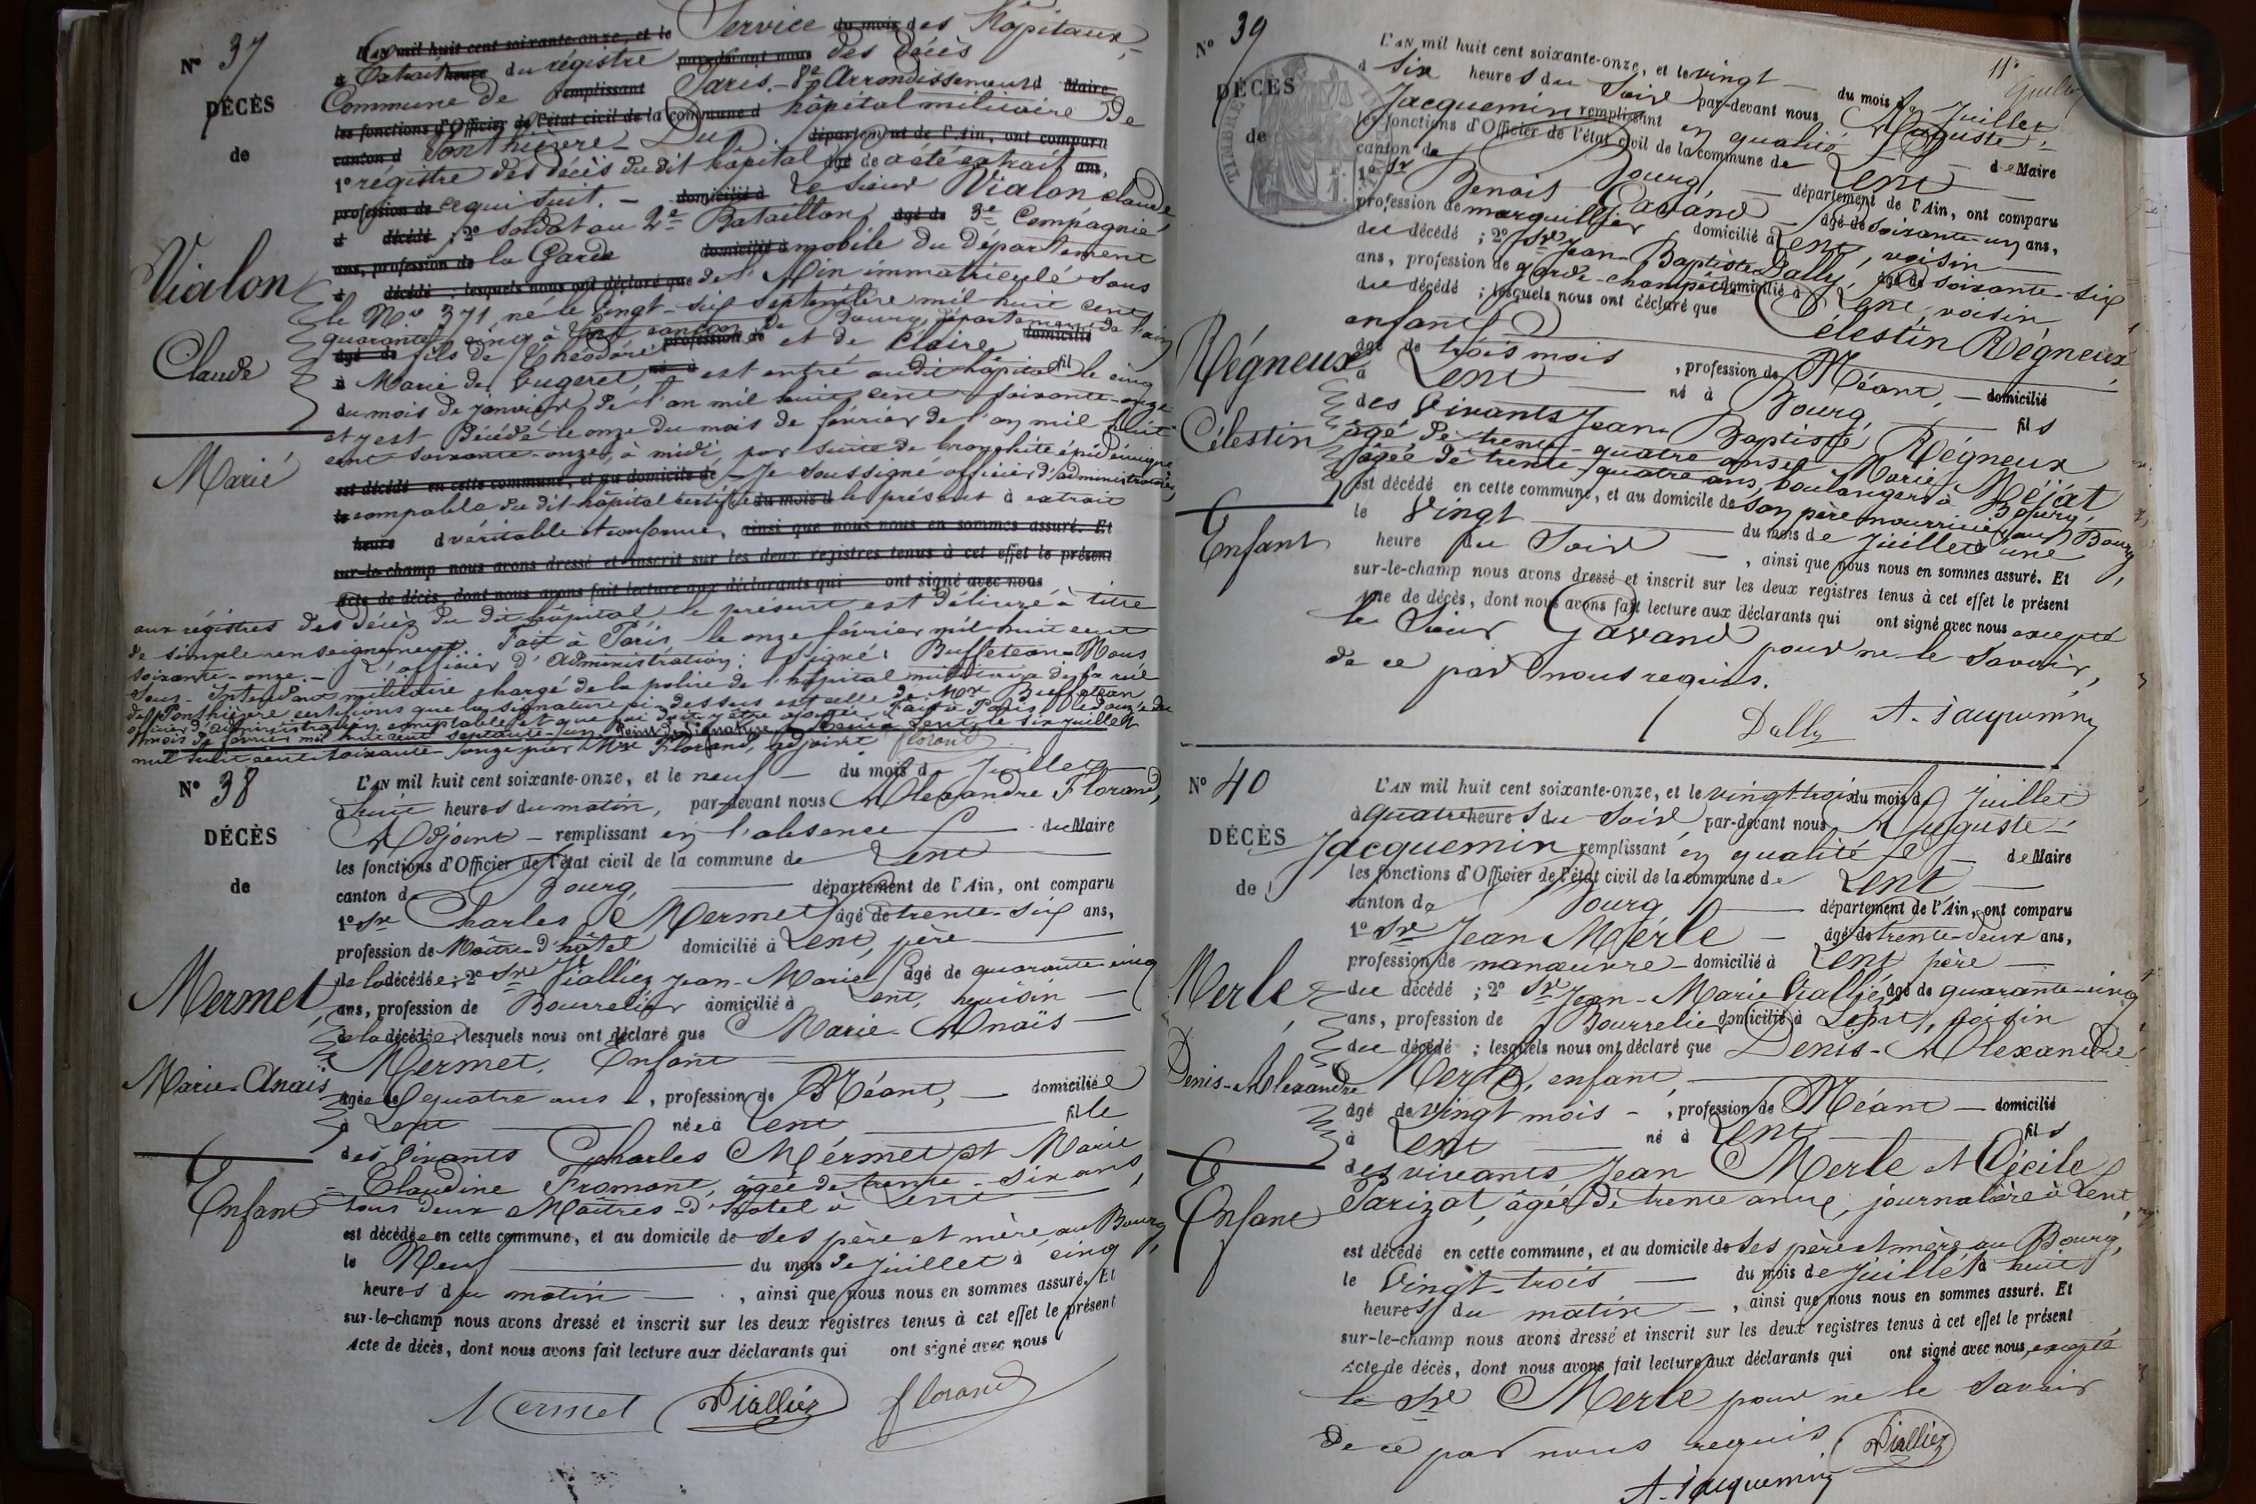 N° 37
DÉCÈS
de
Vialon
Claude
Marié
Service des hôpitaux,
Extrait du régistre des décès
Commune de Paris - 8e Arrondissement
hôpital militaire de
Ponthièvre - Du
1° régistre des décès du dit hopital a été extrait
ce qui suit. - Le sieur Vialon Claude,
soldat au 2e Bataillon, 3e Compagnie,
la Garde mobile du Département
de l'Ain immatriculé sous
le No 371, né le vingt-six septembre mil huit cent
quarante cinq à canton de Bourg, département de l'ain
fils de Théodore et de Claire
Marie des Eugeret, est entré au dit hôpital le cinq
du mois de janvier de l'an mil huit cent soixante-onze
et y est décédé le onze du mois de février de l'an mil huit
cent soixante-onze, à midi, par suite de bronchite épidémique
Je soussigné officier d'administration,
comptable du dit hôpital certifie le présent à extrait
véritable et conforme,
aux régistres des décès du dit hôpital le présent est délivré à titre
de simple renseignement. Fait à Paris le onze février mil huit cent
soixante-onze.- L'officier d'Administration: signé: Buffeteau - Nous
Sous-Intendant militaire chargé de la police de l'hôpital militaire de la rue
de Ponthièvre certifions que la signature ci-dessus est celle de Mr Buffeteau
officier d'administration comptable et que foi doit y être ajoutée. Fait à Paris le douze du
mois de février mil huit cent septante-un. Lent, le six juillet
mil huit cent soixante-onze par Mr Florand, adjoint Florand
N° 38
DÉCÈS
de
Mermet
Marie-Anaïs
Enfant
L'AN mil huit cent soixante-onze, et le neuf - du mois de Juillet
à huit heures du matin, par-devant nous Alexandre Florand,
Adjoint - remplissant en l'absence du Maire
les fonctions d'Officier de l'état civil de la commune de Lent
canton de Bourg, département de l'Ain, ont comparu
1° Sre Charles Mermet âgé de trente-six ans,
profession de Maître-d'hôtel domicilié à Lent, père
de la décédée; 2° Sre Vialliez Jean-Marie âgé de quarante-cinq
ans, profession de Bourrelier domicilié à Lent, voisin
de la décédée; lesquels nous ont déclaré que Marie-Anaïs
Mermet, Enfant
âgée de quatre ans, profession de Néant, domiciliée
à Lent née à Lent fille
des vivants Charles Mermet et Marie
Claudine Fromont, âgée de trente-six ans,
tous deux Maîtres-d'hôtel à Lent
est décédée en cette commune, et au domicile de ses père et mère, au Bourg,
le Neuf du mois de juillet à cinq
heures du matin, ainsi que nous nous en sommes assuré. Et
sur-le-champ nous avons dressé et inscrit sur les deux registres tenus à cet effet le présent
Acte de décès, dont nous avons fait lecture aux déclarants qui ont signé avec nous
Mermet Vialliez Florand
N° 39
DÉCÈS
de
Régneux
Célestin
Enfant
L'AN mil huit cent soixante-onze, et le vingt du mois de Juillet
à six heures du soir par-devant nous Auguste
Jacquemin remplissant en qualité de Maire
les fonctions d'Officier de l'état civil de la commune de Lent
canton de Bourg, département de l'Ain, ont comparu
1° Sr Benoit Gavand âgé de soixante-un ans,
profession de marguillier domicilié à Lent, voisin
du décédé; 2° Sre Jean-Baptiste Dally, âgé de soixante-six
ans, profession de garde-champêtre domicilié à Lent, voisin
du décédé; lesquels nous ont déclaré que Célestin Régneux,
enfant
âgé de trois mois, profession de Néant, domicilié
à Lent né à Bourg fils
des vivants Jean-Baptiste Régneux
âgé de trente-quatre ans et Marie Méjat
âgée de trente-quatre ans, boulangers à Bourg,
est décédé en cette commune, et au domicile de son père nourricier, au Bourg,
le Vingt du mois de juillet à une
heure du soir, ainsi que nous nous en sommes assuré. Et
sur-le-champ nous avons dressé et inscrit sur les deux registres tenus à cet effet le présent
Acte de décès, dont nous avons fait lecture aux déclarants qui ont signé avec nous excepté
le Sieur Gavand pour ne le savoir,
de ce par nous requis.
Dally A. Jacquemin
N° 40
DÉCÈS
de
Merle
Denis-Alexandre
Enfant
L'AN mil huit cent soixante-onze, et le vingt-trois du mois de Juillet
à quatre heures du soir par-devant nous Auguste
Jacquemin remplissant en qualité de Maire
les fonctions d'Officier de l'état civil de la commune de Lent
canton de Bourg département de l'Ain, ont comparu
1° Sre Jean Merle - âgé de trente-deux ans,
profession de manœuvre - domicilié à Lent père
du décédé; 2° Sre Jean-Marie Vialliez âgé de quarante-cinq
ans, profession de Bourrelier domicilié à Lent, voisin
du décédé; lesquels nous ont déclaré que Denis-Alexandre
Merle, enfant,
âgé de vingt mois -, profession de Néant - domicilié
à Lent né à Lent fils
des vivants Jean Merle et Cécile
Parizot, âgée de trente ans, journalière à Lent,
est décédé en cette commune, et au domicile de ses père et mère au Bourg,
le Vingt-trois du mois de juillet à huit
heures du matin, ainsi que nous nous en sommes assuré. Et
sur-le-champ nous avons dressé et inscrit sur les deux registres tenus à cet effet le présent
Acte de décès, dont nous avons fait lecture aux déclarants qui ont signé avec nous, excepté
le Sre Merle pour ne le savoir
de ce par nous requis. Vialliez
A. Jacquemin